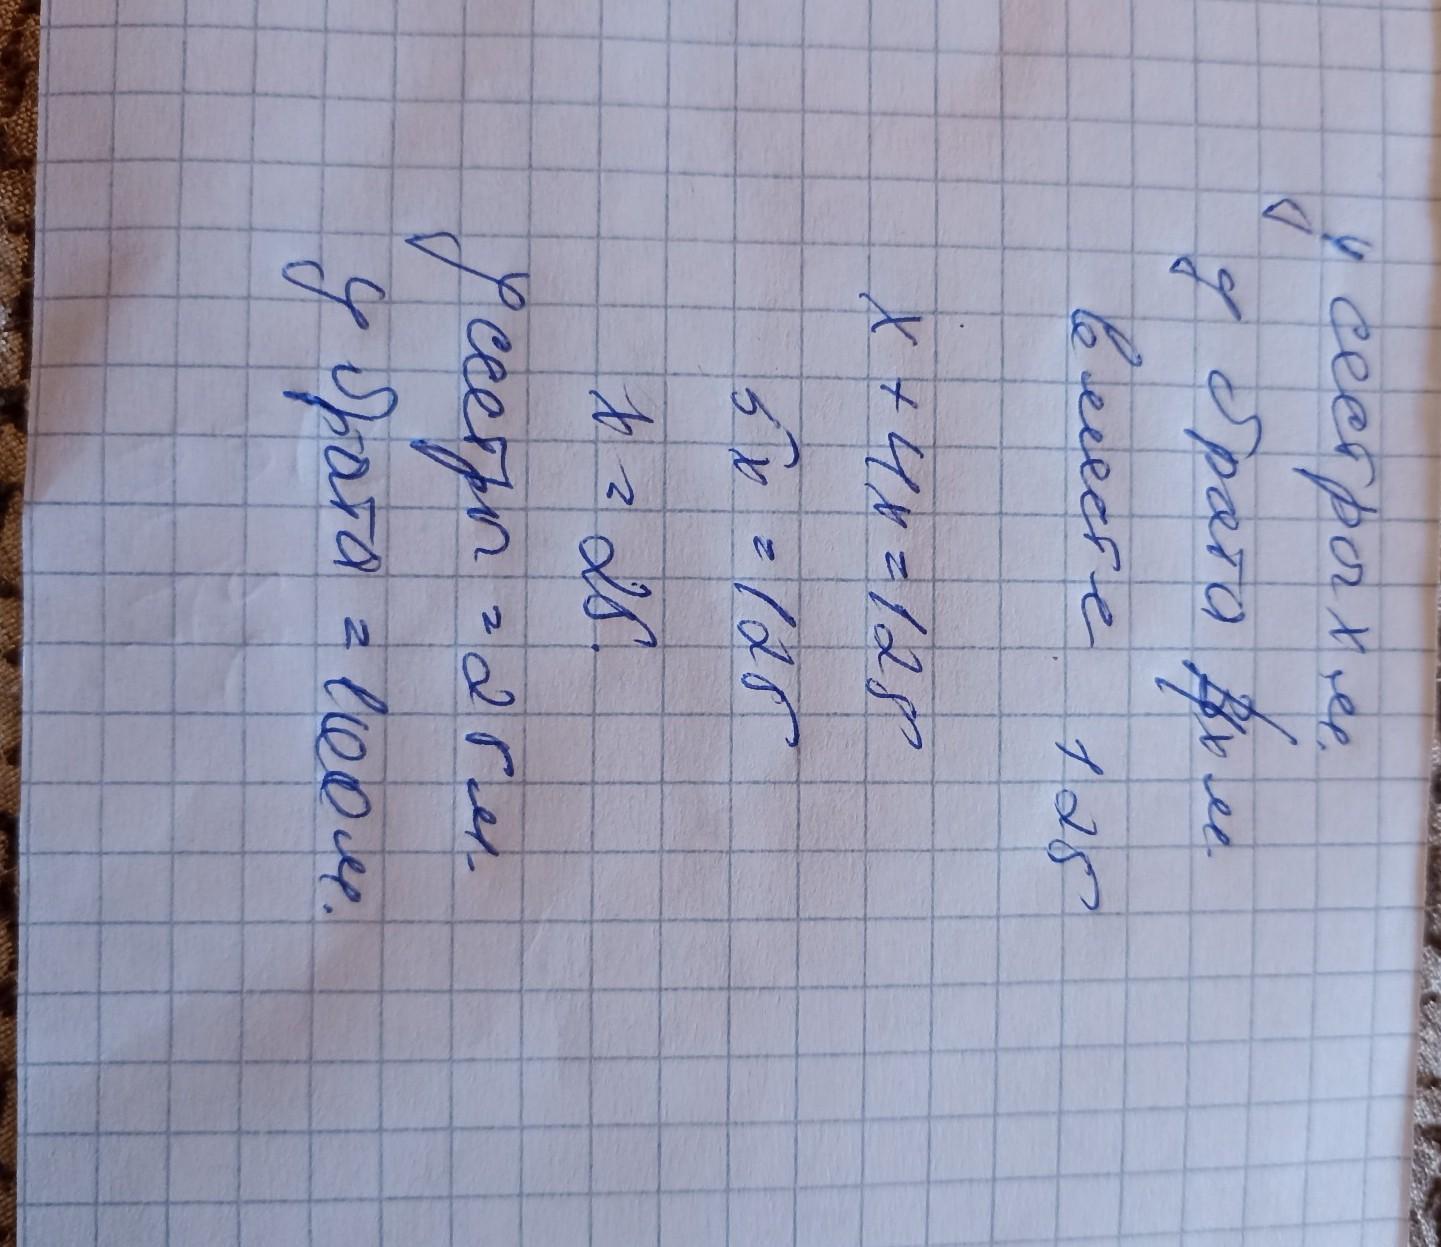 У сестры х м.
У брата 4х м.
вместе 125
х + 4х = 125
5х = 125
х = 25.
У сестры = 25 м.
У брата = 100 м.